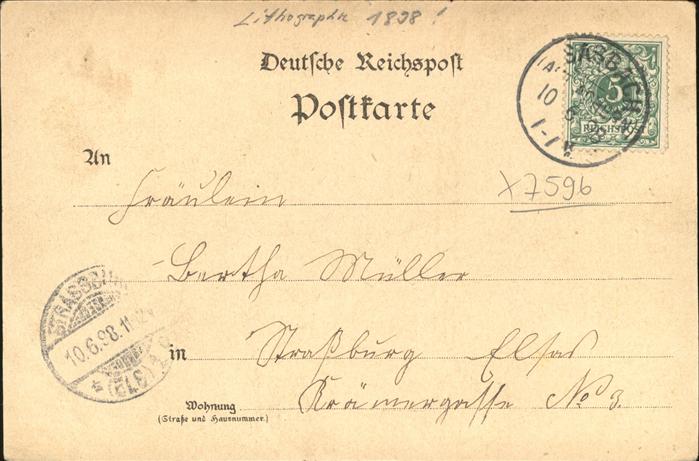 Lithographie 1898!
Deutsche Reichspost
Postkarte
SASBACH
10 6 98
1-1N
5
REICHSPOST
An
X7596
Fräulein
Bertha Müller
STRASSBURG
10.6.98.11-12
(ELS) 1
in Straßburg Elsas
Wohnung Krämergasse No 3.
(Straße und Hausnummer.)